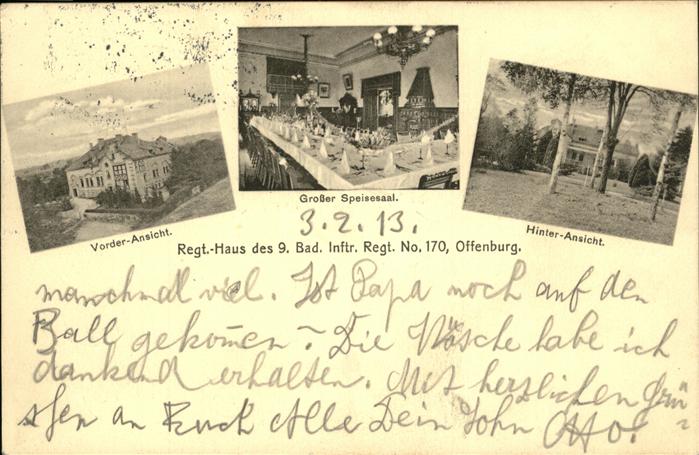 Großer Speisesaal.
Vorder-Ansicht.
Hinter-Ansicht.
3.2.13.
Regt.-Haus des 9. Bad. Inftr. Regt. No. 170, Offenburg.
manchmal viel. Ist Papa noch auf den
Ball gekom̅en? Die Wäsche habe ich
dankend erhalten. Mit herzlichen Grü-
ßen an Euch Alle Dein Sohn Otto.